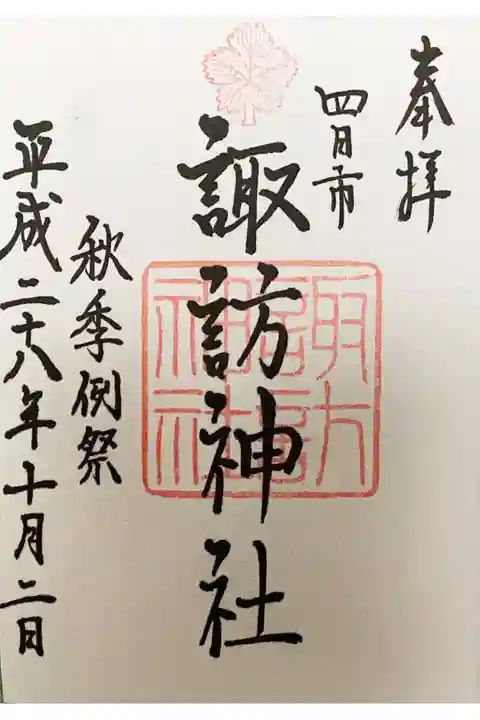 奉拝
四日市
諏訪神社
諏訪
神社
秋季例祭
平成二十八年十月二日